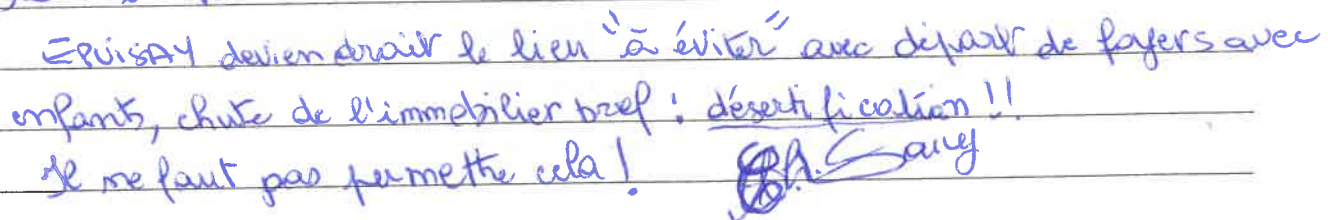 EPUISAY deviendrait le lieu "à éviter" avec départ de foyers avec
enfants, chute de l'immobilier bref : désertification !!
Il ne faut pas permettre cela !